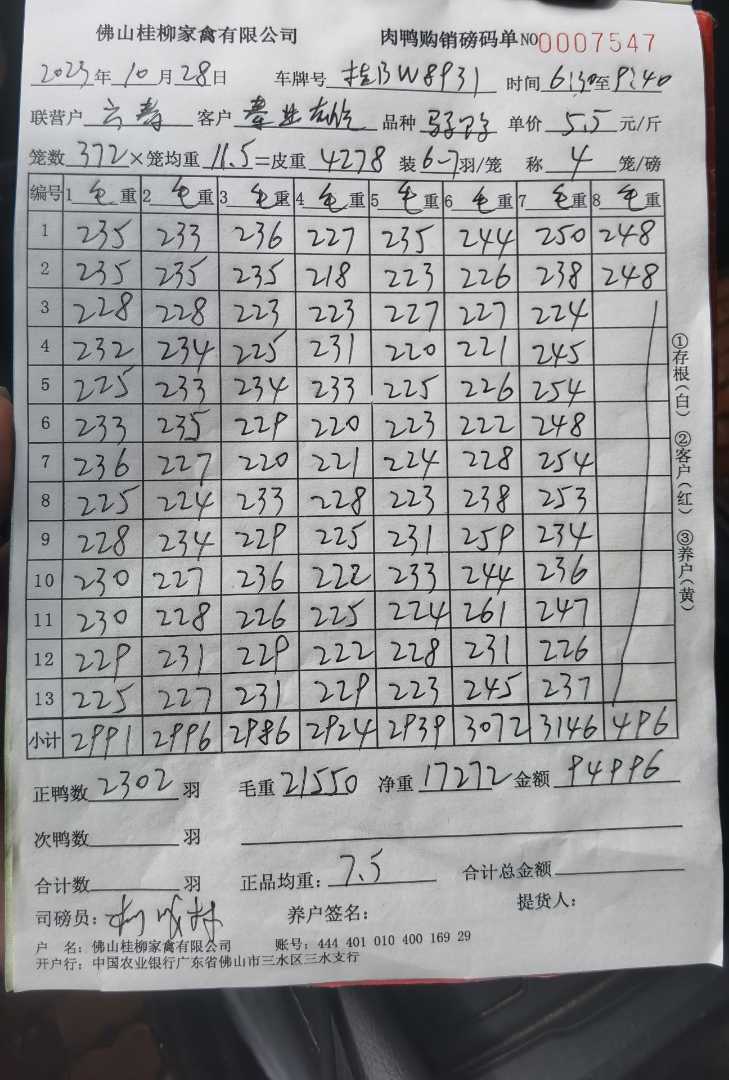 佛山桂柳家禽有限公司 肉鸭购销磅码单 NO 0007547
2023年10月28日 车牌号 桂BW8931 时间 6:30至9:40
联营户 客户 品种 单价 5.5 元/斤
笼数 372 ×笼均重 11.5 =皮重 4278 装 6-7 羽/笼 称 4 笼/磅
编号 1 毛重 2 毛重 3 毛重 4 毛重 5 毛重 6 毛重 7 毛重 8 毛重
1 235 233 236 227 235 244 250 248
2 235 235 235 218 223 226 238 248
3 228 228 223 223 227 227 224
4 232 234 225 231 220 221 245
5 225 233 234 233 225 226 254
6 233 235 229 220 223 222 248
7 236 227 220 221 224 228 254
8 225 224 233 228 223 238 253
9 228 234 229 225 231 259 234
10 230 227 236 222 233 244 236
11 230 228 226 225 224 261 247
12 229 231 229 222 228 231 226
13 225 227 231 229 223 245 237
小计 2991 2996 2986 2924 2939 3072 3146 496
①存根(白) ②客户(红) ③养户(黄)
正鸭数 2302 羽 毛重 21550 净重 17272 金额 94996
次鸭数 羽
合计数 羽 正品均重: 7.5 合计总金额
司磅员: 养户签名: 提货人:
户 名: 佛山桂柳家禽有限公司 账号: 444 401 010 400 169 29
开户行: 中国农业银行广东省佛山市三水区三水支行